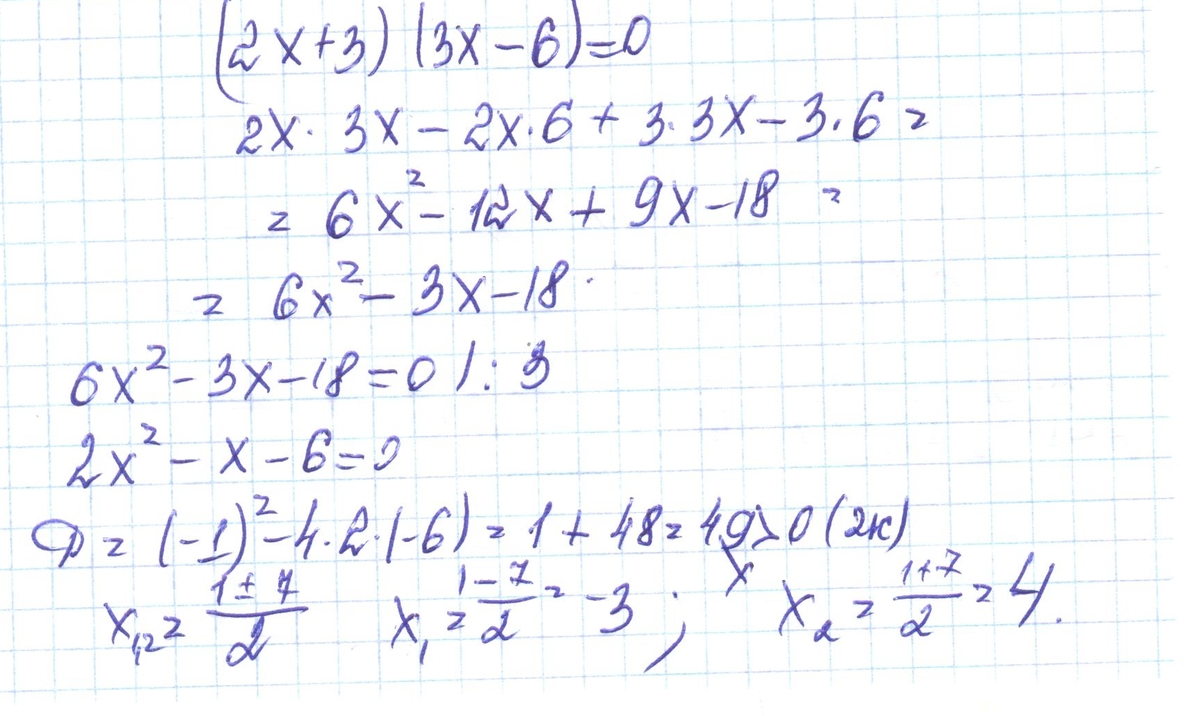 (2x+3)(3x-6)=0
2x· 3x - 2x·6 + 3·3x - 3·6 =
= 6x² - 12x + 9x - 18 =
= 6x² - 3x - 18.
6x² - 3x - 18 = 0 /: 3
2x² - x - 6 = 0
D = (-1)² - 4·2·(-6) = 1 + 48 = 49 > 0 (2к)
x₁,₂ = (1 ± 7)/2 x₁ = (1 - 7)/2 = -3 ; x x₂ = (1+7)/2 = 4.